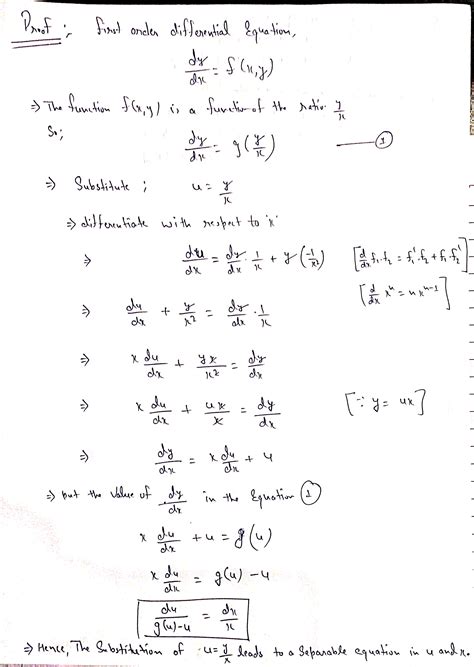 Proof :, first order differential Equation,
dy/dx = f(x,y)
⇒ The function f(x,y) is a function of the ratio y/x
So;
dy/dx = g(y/x) —— ①
⇒ Substitute ; u = y/x
⇒ differentiate with respect to 'x'
⇒ du/dx = dy/dx · 1/x + y(-1/x²) [d/dx f₁·f₂ = f₁'·f₂ + f₁·f₂']
[d/dx xⁿ = nxⁿ⁻¹]
⇒ du/dx + y/x² = dy/dx · 1/x
⇒ x du/dx + yx/x² = dy/dx
⇒ x du/dx + ux/x = dy/dx [∵ y = ux]
⇒ dy/dx = x du/dx + u
⇒ Put the value of dy/dx in the Equation ①
x du/dx + u = g(u)
x du/dx = g(u) - u
du/g(u)-u = dx/x
⇒ Hence, The Substitution of u = y/x leads to a Separable equation in u and x.